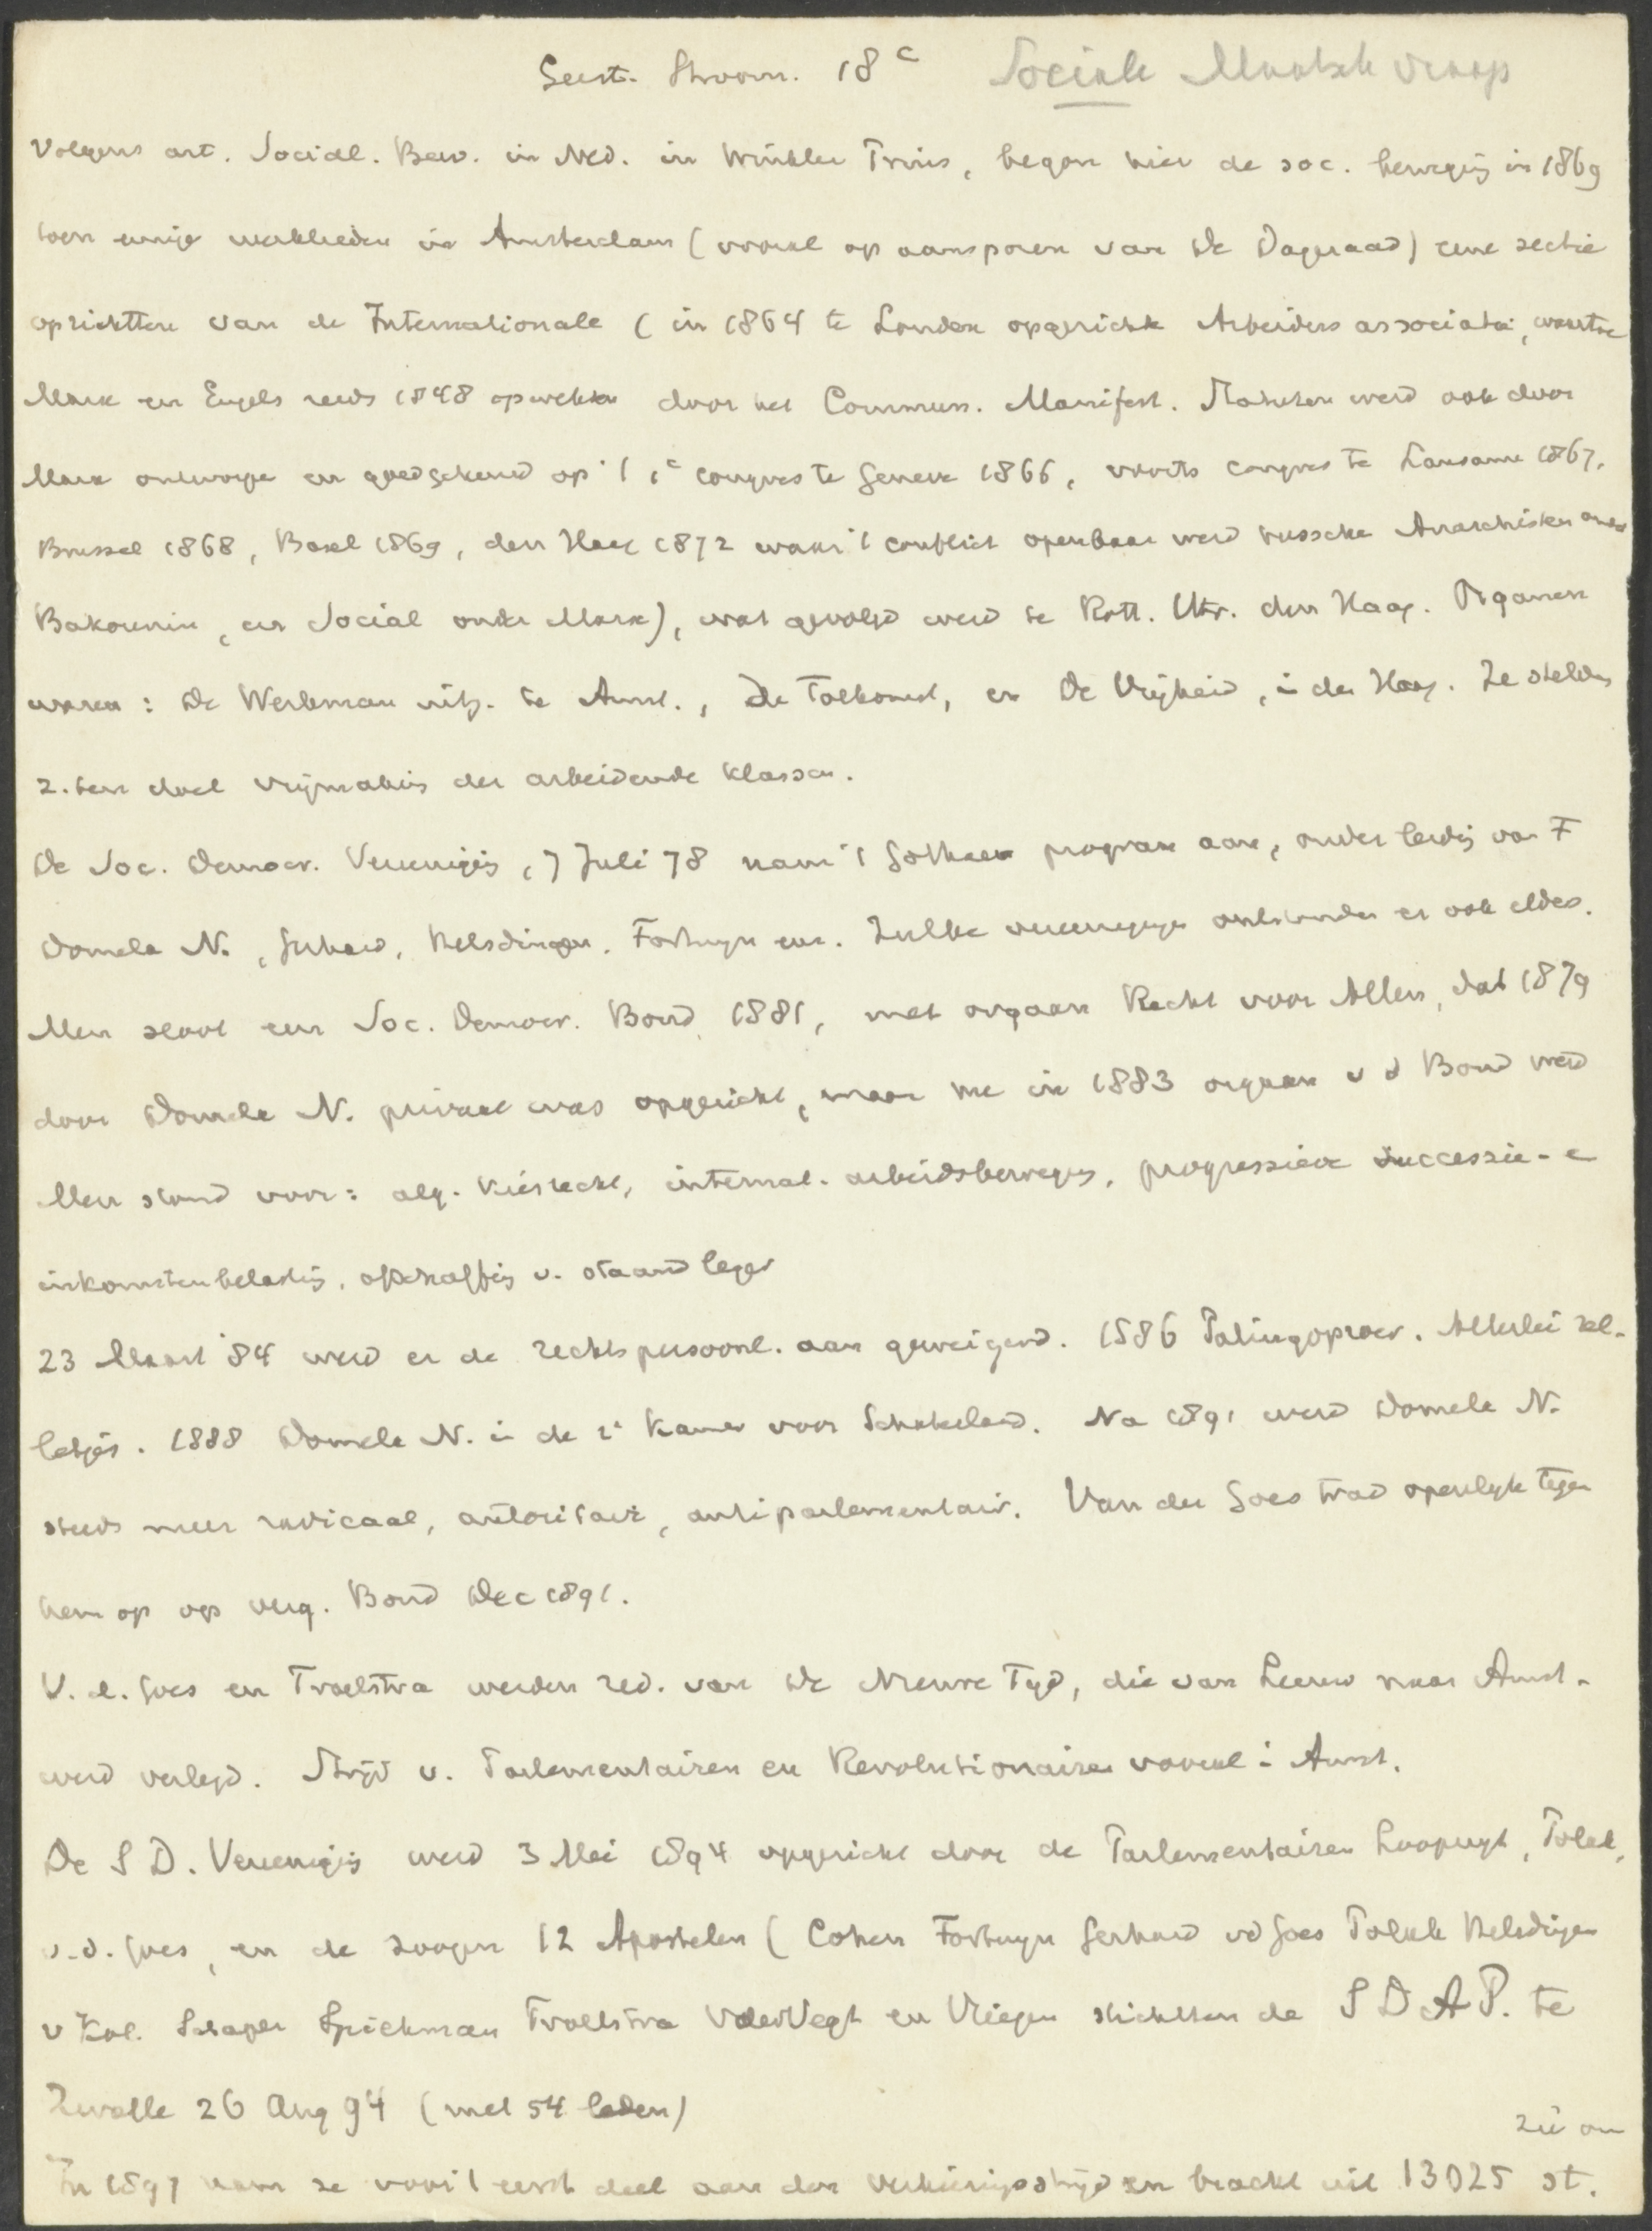 Geest. Stroom. 18e Sociale Maatsch vraag
Volgens art. Social. Bew. in Ned. in Winkler Prins, begon hier de soc. beweging in 1869
toen eenige werklieden in Amsterdam (vooral op aansporen van De Dageraad) eene sectie
oprichtten van de Internationale (in 1864 te Londen opgerichte Arbeiders associatie, waartoe
Marx en Engels reeds 1848 opwekten door het Commun. Manifest. Statuten werd ook door
Marx ontworpe en goedgekeurd op 't 1e congres te Geneve 1866, voorts congres te Lausanne 1867,
Brussel 1868, Basel 1869, den Haag 1872 waar 't conflict openbaar werd russche Anarchisten onder
Bakounin, en Social onder Marx), wat gevolgd werd te Rott. Utr. den Haag. Organen
waren: De Werkman uitg. te Amst., De Toekomst, en De Vrijheid, in den Haag. Ze stelden
z. ten doel vrijmaking der arbeidende klassen.
De Soc. Democr. Vereeniging, 7 Juli 78 nam 't Gothaer program aan, onder leiding van F
Domela N., Gerhard, Helsdingen, Fortuyn enz. Zulke vereenigingen ontstonden er ook elders.
Men sloot een Soc. Democr. Bond 1881, met orgaan Recht voor Allen, dat 1879
door Domela N. privaat was opgericht, maar nu in 1883 orgaan v d Bond werd
Men stond voor: alg. kiesrecht, internat. arbeidsbeweging, progressieve successie- e
inkomstenbelasting, afschaffing v. staand leger
23 Maart '84 werd er de rechtspersoonl. aan geweigerd. 1886 Palingoproer. Allerlei rel-
letjes. 1888 Domela N. in de 2e Kamer voor Schoterland. Na 1891 werd Domela N.
steeds meer radicaal, autoritair, antiparlementair. Van der Goes trad openlijk tegen
hem op op verg. Bond Dec 1891.
V. d. Goes en Troelstra werden red. van De Nieuwe Tyd, die van Leeuw naar Amst.
werd verlegd. Strijd v. Parlementairen en Revolutionairen vooral in Amst.
De S D. Vereeniging werd 3 Mei 1894 opgericht door de Parlementairen Loopuyt, Polak,
v.d. Goes, en de zoogen 12 Apostelen (Cohen Fortuyn Gerhard vd Goes Polak Helsdingen
v Kol. Schaper Spiekman Troelstra vderVegt en Vliegen stichtten de S D A P. te
Zwolle 26 Aug 94 (met 54 leden)
In 1897 nam ze voor 't eerst deel aan den verkiezingsstrijd en bracht uit 13025 st.
zie om